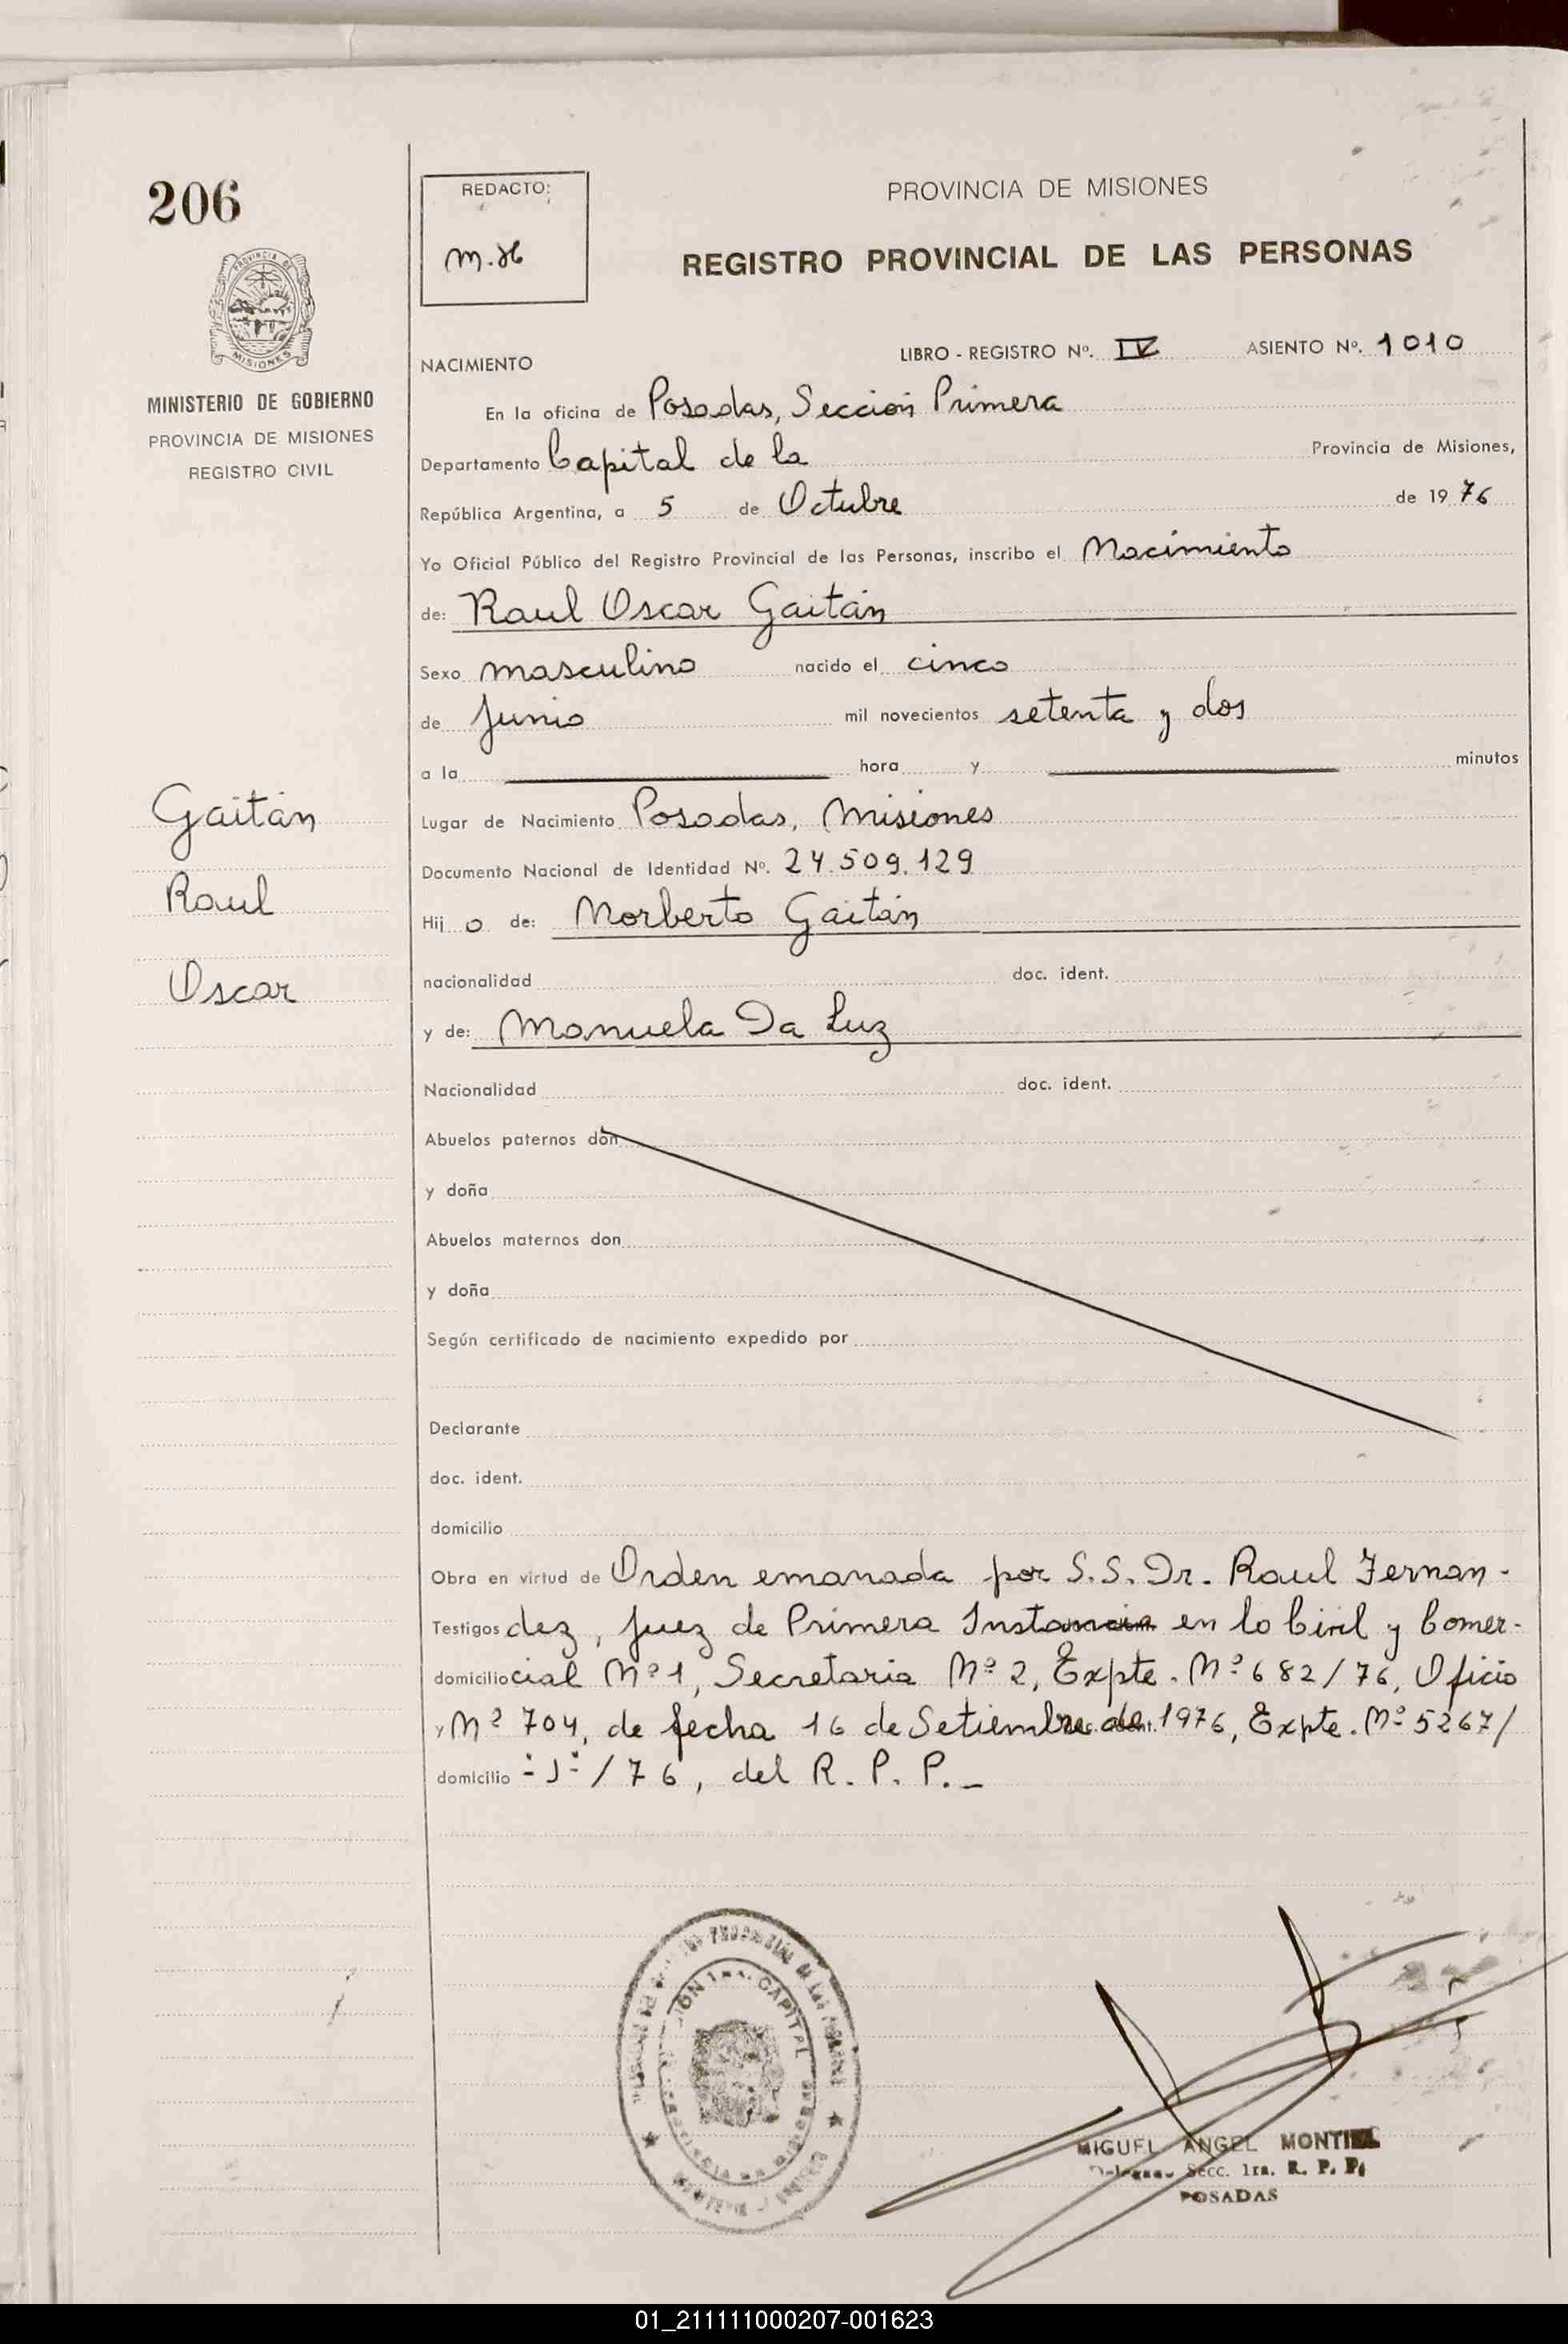 206
PROVINCIA DE
MISIONES
MINISTERIO DE GOBIERNO
PROVINCIA DE MISIONES
REGISTRO CIVIL
Gaitán
Raul
Oscar
REDACTO:
M.H
PROVINCIA DE MISIONES
REGISTRO PROVINCIAL DE LAS PERSONAS
NACIMIENTO LIBRO - REGISTRO Nº. IV ASIENTO Nº. 1010
En la oficina de Posadas, Sección Primera
Departamento Capital de la Provincia de Misiones,
República Argentina, a 5 de Octubre de 1976
Yo Oficial Público del Registro Provincial de las Personas, inscribo el Nacimiento
de: Raul Oscar Gaitán
Sexo masculino nacido el cinco
de Junio mil novecientos setenta y dos
a la hora y minutos
Lugar de Nacimiento Posadas, Misiones
Documento Nacional de Identidad Nº. 24.509.129
Hijo de: Norberto Gaitán
nacionalidad doc. ident.
y de: Manuela Da Luz
Nacionalidad doc. ident.
Abuelos paternos don
y doña
Abuelos maternos don
y doña
Según certificado de nacimiento expedido por
Declarante
doc. ident.
domicilio
Obra en virtud de Orden emanada por S.S. Dr. Raul Fernan-
Testigos dez, Juez de Primera Instancia en lo Civil y Comer-
domicilio cial Nº 1, Secretaria Nº 2, Expte. Nº 682/76, Oficio
y Nº 704, de fecha 16 de Setiembre de 1976, Expte. Nº 5267/
domicilio "J"/76, del R. P. P.
CAPITAL
MIGUEL ANGEL MONTIEL
Secc. 1ra. R. P. P.
POSADAS
01_211111000207-001623